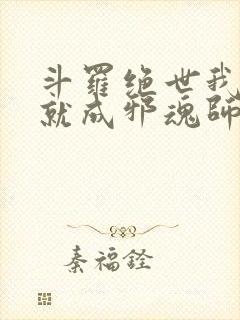 斗羅绝世我
就成邪魂師
秦福铨